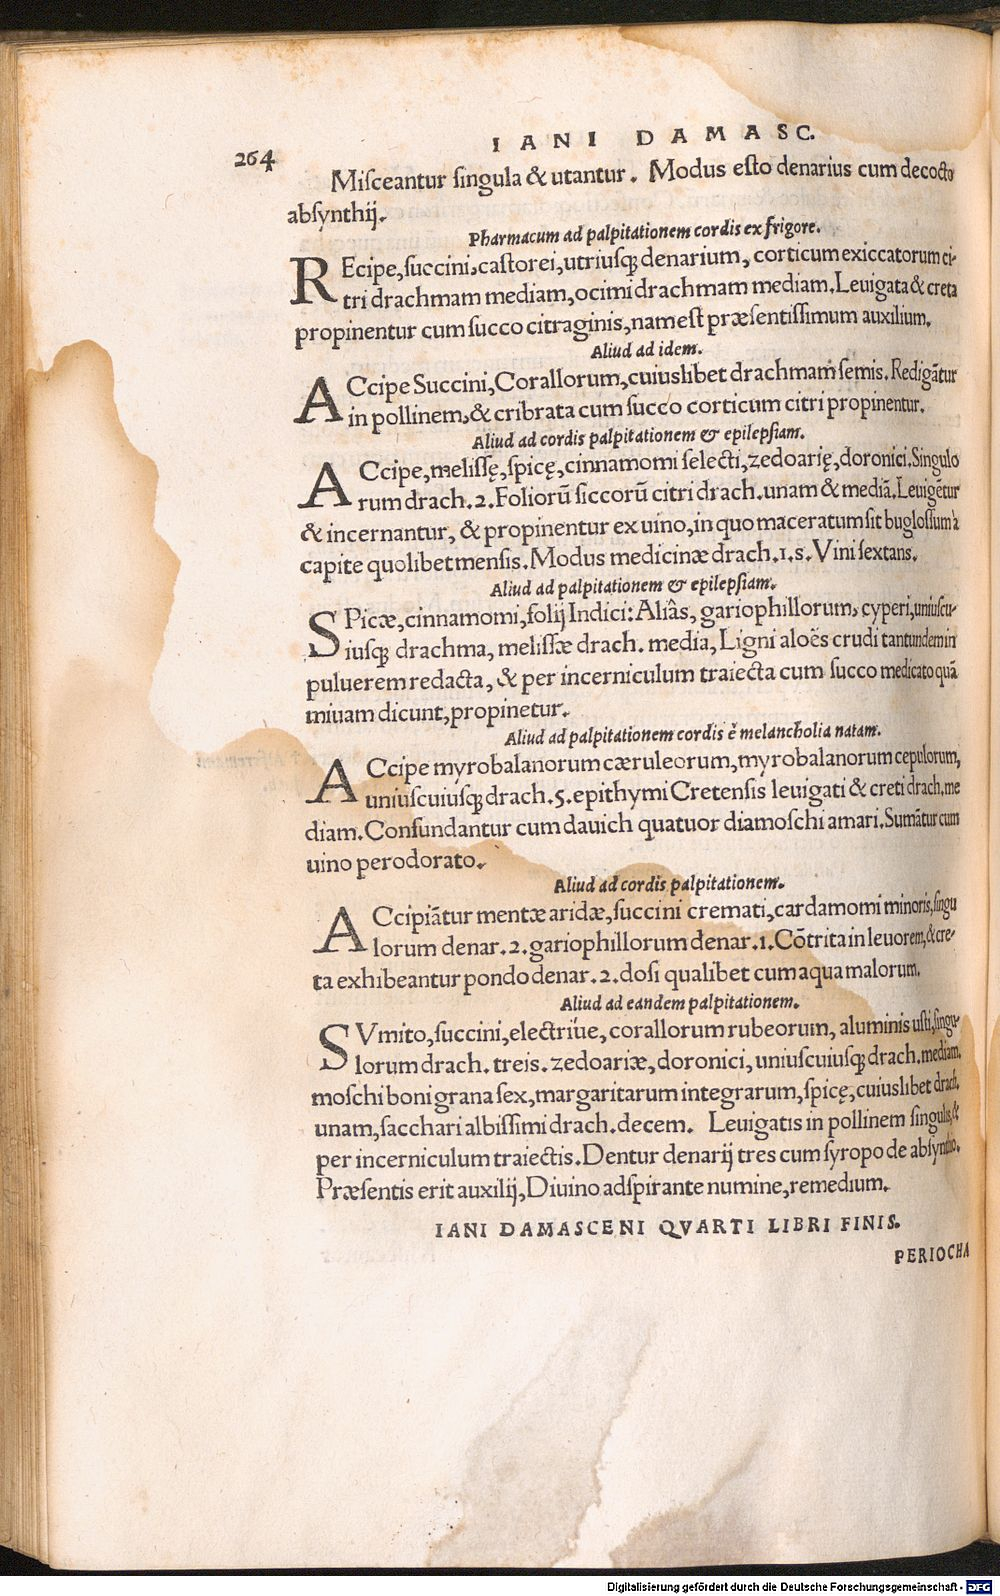 264
IANI DAMASC.
Miſceantur ſingula & utantur. Modus eſto denarius cum decocto
abſynthij.
Pharmacum ad palpitationem cordis ex frigore.
REcipe, ſuccini, caſtorei, utriuſq; denarium, corticum exiccatorum ci-
tri drachmam mediam, ocimi drachmam mediam. Leuigata & creta
propinentur cum ſucco citraginis, nam eſt præſentiſſimum auxilium.
Aliud ad idem.
ACcipe Succini, Corallorum, cuiuslibet drachmam ſemis. Redigãtur
in pollinem, & cribrata cum ſucco corticum citri propinentur.
Aliud ad cordis palpitationem & epilepſiam.
ACcipe, meliſſę, ſpicę, cinnamomi ſelecti, zedoarię, doronici. Singulo
rum drach. 2. Foliorũ ſiccorũ citri drach. unam & mediã. Leuigẽtur
& incernantur, & propinentur ex uino, in quo maceratum ſit bugloſſum à
capite quolibet menſis. Modus medicinæ drach. 1. s. Vini ſextans.
Aliud ad palpitationem & epilepſiam.
SPicæ, cinnamomi, folij Indici: Aliâs, gariophillorum, cyperi, uniuſcu-
iuſq; drachma, meliſſæ drach. media, Ligni aloës crudi tantundem in
puluerem redacta, & per incerniculum traiecta cum ſucco medicato quã
miuam dicunt, propinetur.
Aliud ad palpitationem cordis è melancholia natam.
ACcipe myrobalanorum cæruleorum, myrobalanorum cepulorum,
uniuſcuiuſq; drach. 5. epithymi Cretenſis leuigati & creti drach. me
diam. Confundantur cum dauich quatuor diamoſchi amari. Sumãtur cum
uino perodorato.
Aliud ad cordis palpitationem.
ACcipiãtur mentæ aridæ, ſuccini cremati, cardamomi minoris, ſingu
lorum denar. 2. gariophillorum denar. 1. Cõtrita in leuorem, & cre-
ta exhibeantur pondo denar. 2. doſi qualibet cum aqua malorum.
Aliud ad eandem palpitationem.
SVmito, ſuccini, electriue, corallorum rubeorum, aluminis uſti, ſingu-
lorum drach. treis. zedoariæ, doronici, uniuſcuiuſq; drach. mediam.
moſchi boni grana ſex, margaritarum integrarum, ſpicę, cuiuslibet drach.
unam, ſacchari albiſſimi drach. decem. Leuigatis in pollinem ſingulis, &
per incerniculum traiectis. Dentur denarij tres cum ſyropo de abſynthio.
Præſentis erit auxilij, Diuino adſpirante numine, remedium.
IANI DAMASCENI QVARTI LIBRI FINIS.
PERIOCHA
Digitalisierung gefördert durch die Deutsche Forschungsgemeinschaft - DFG